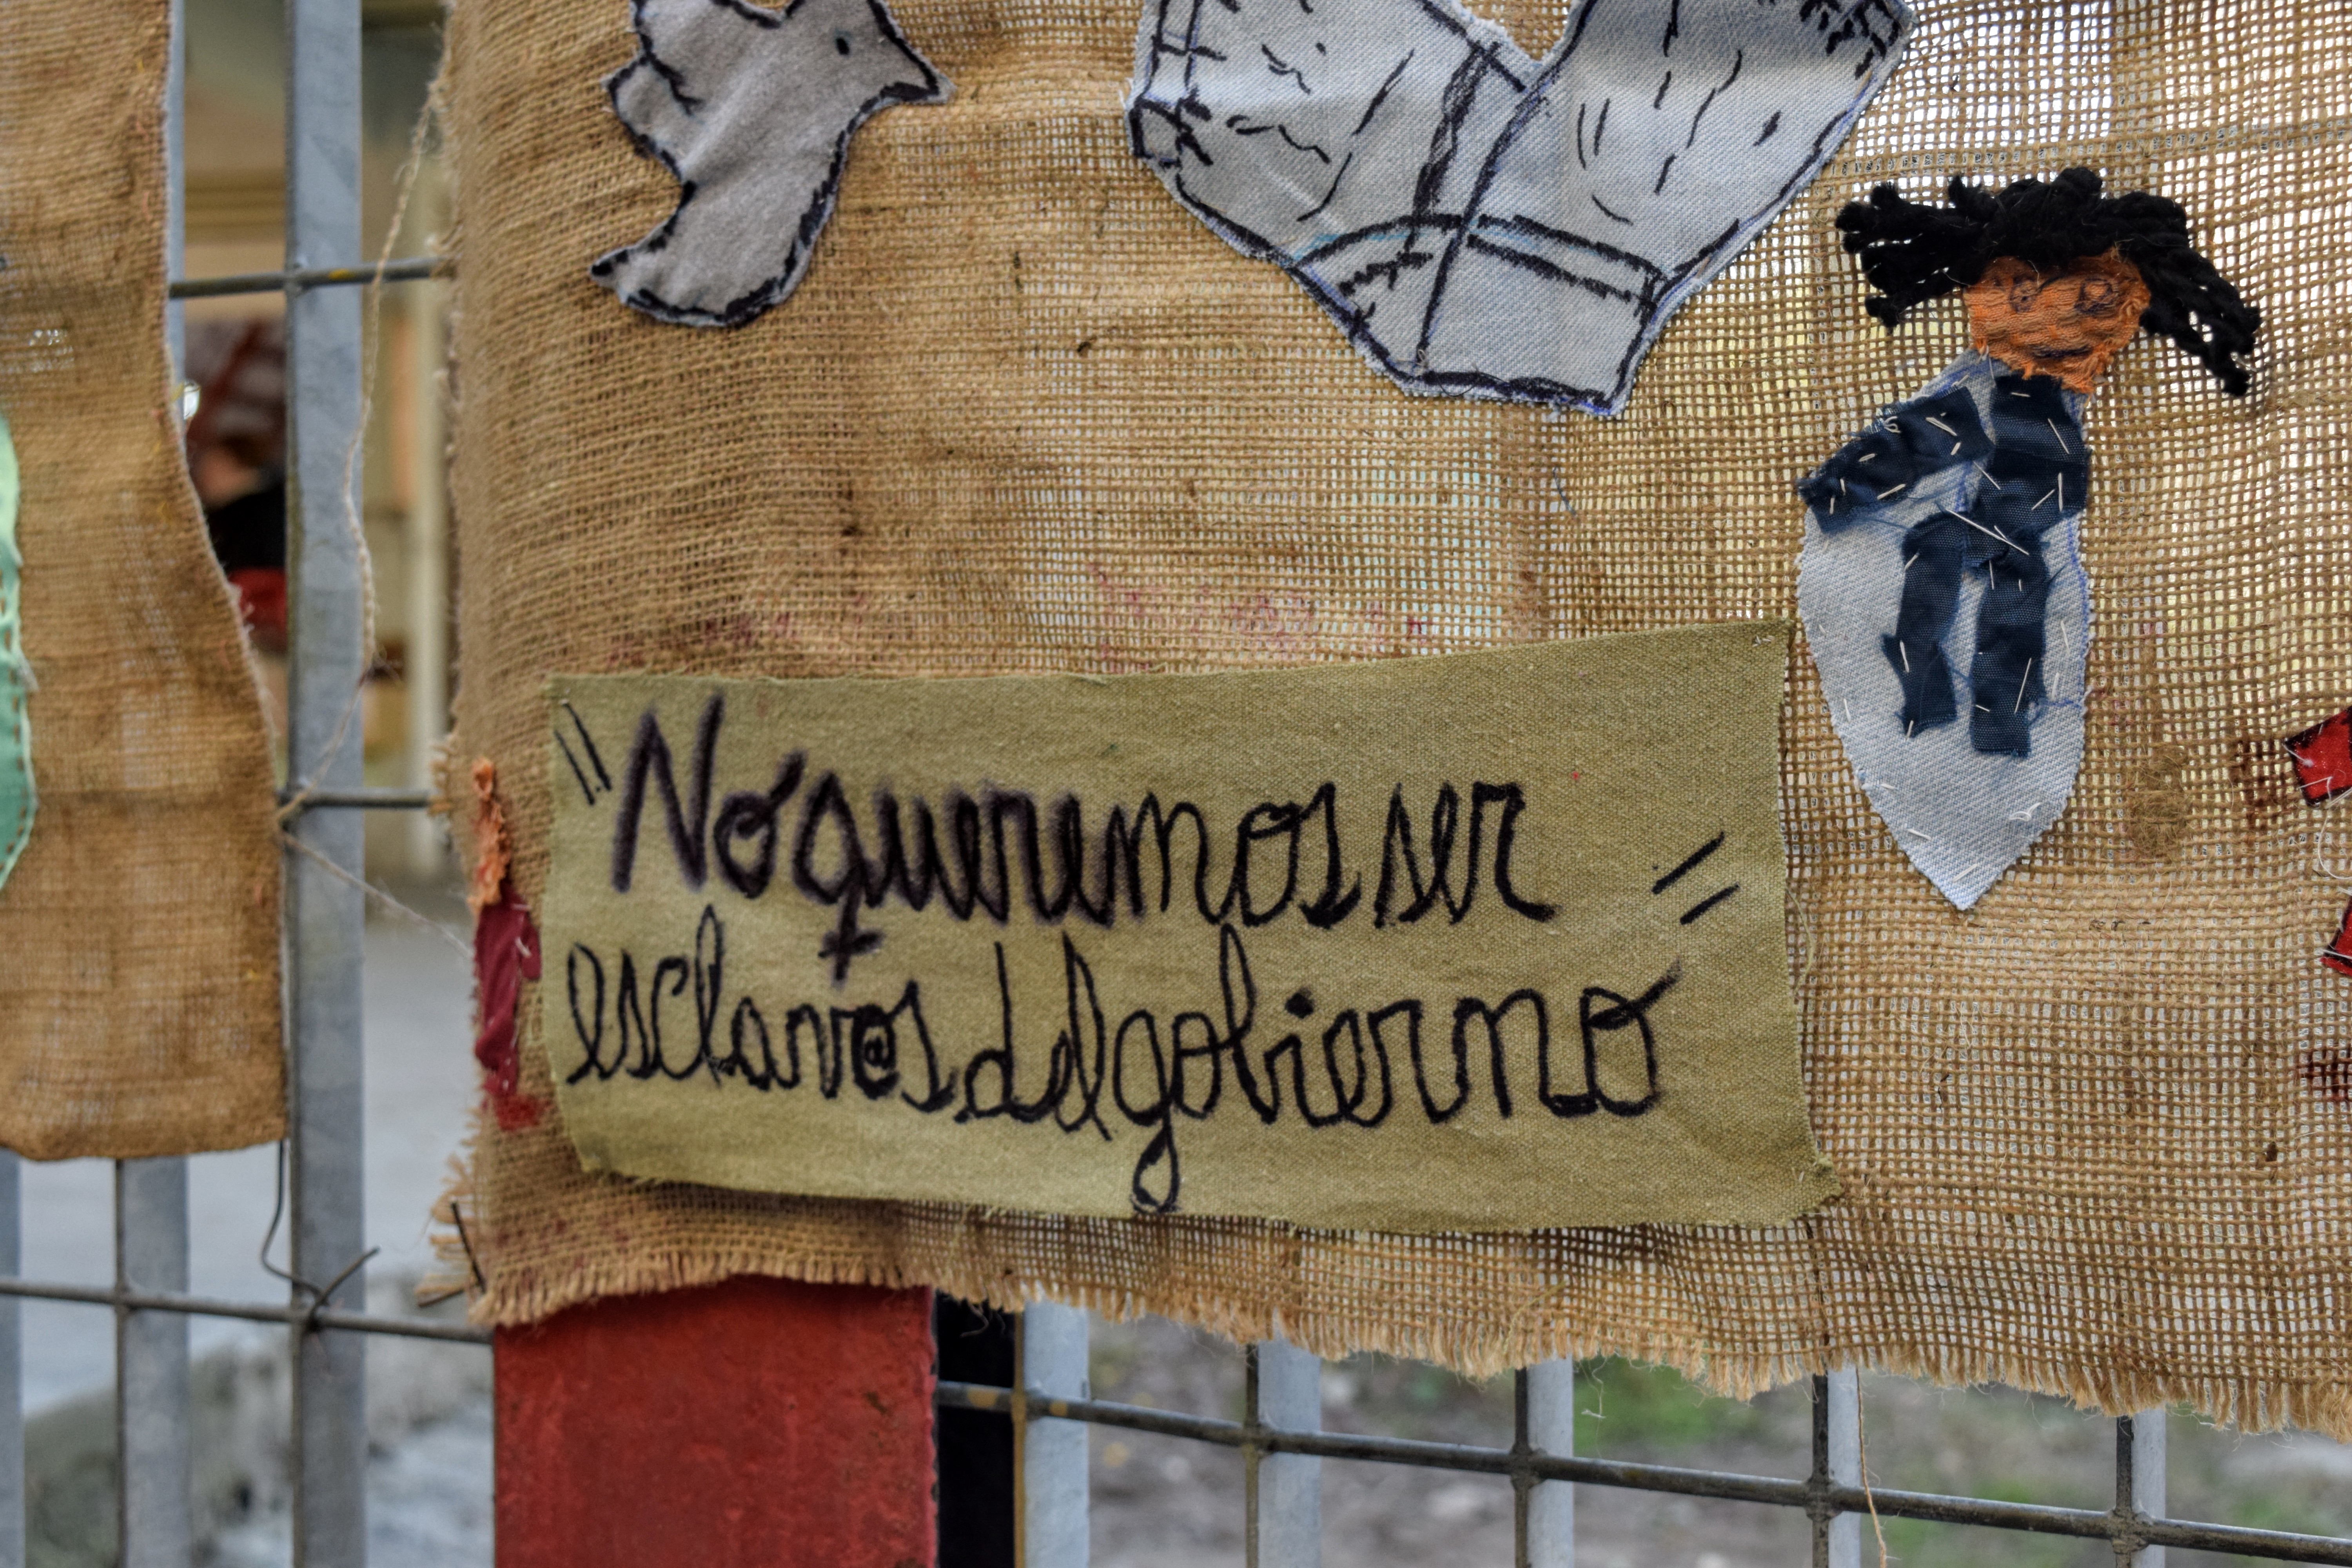 "No queremos ser "
esclav@s del gobierno